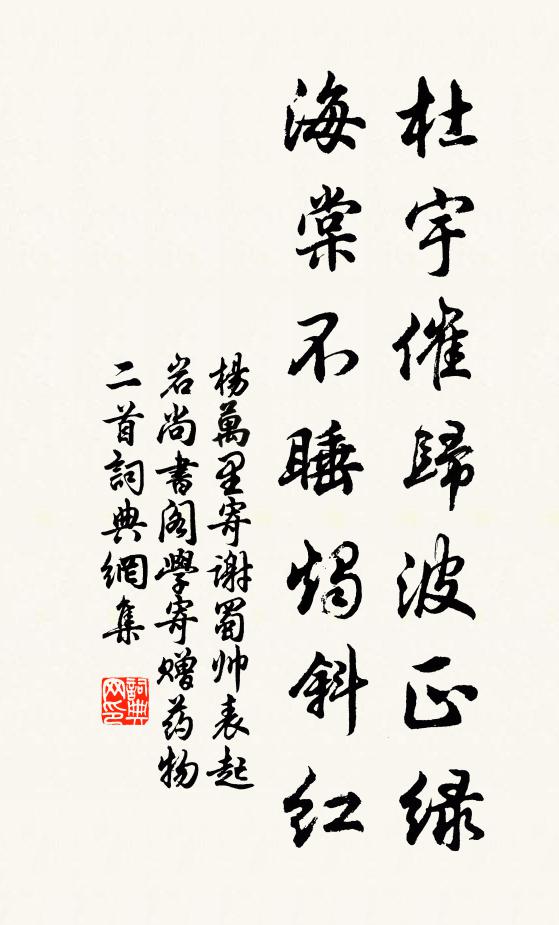 杜宇催歸波正緑
海棠不睡燭斜红
楊萬里寄謝蜀帅袁起
岩尚書阁學寄贈药物
二首詞典網集
詞典
网印